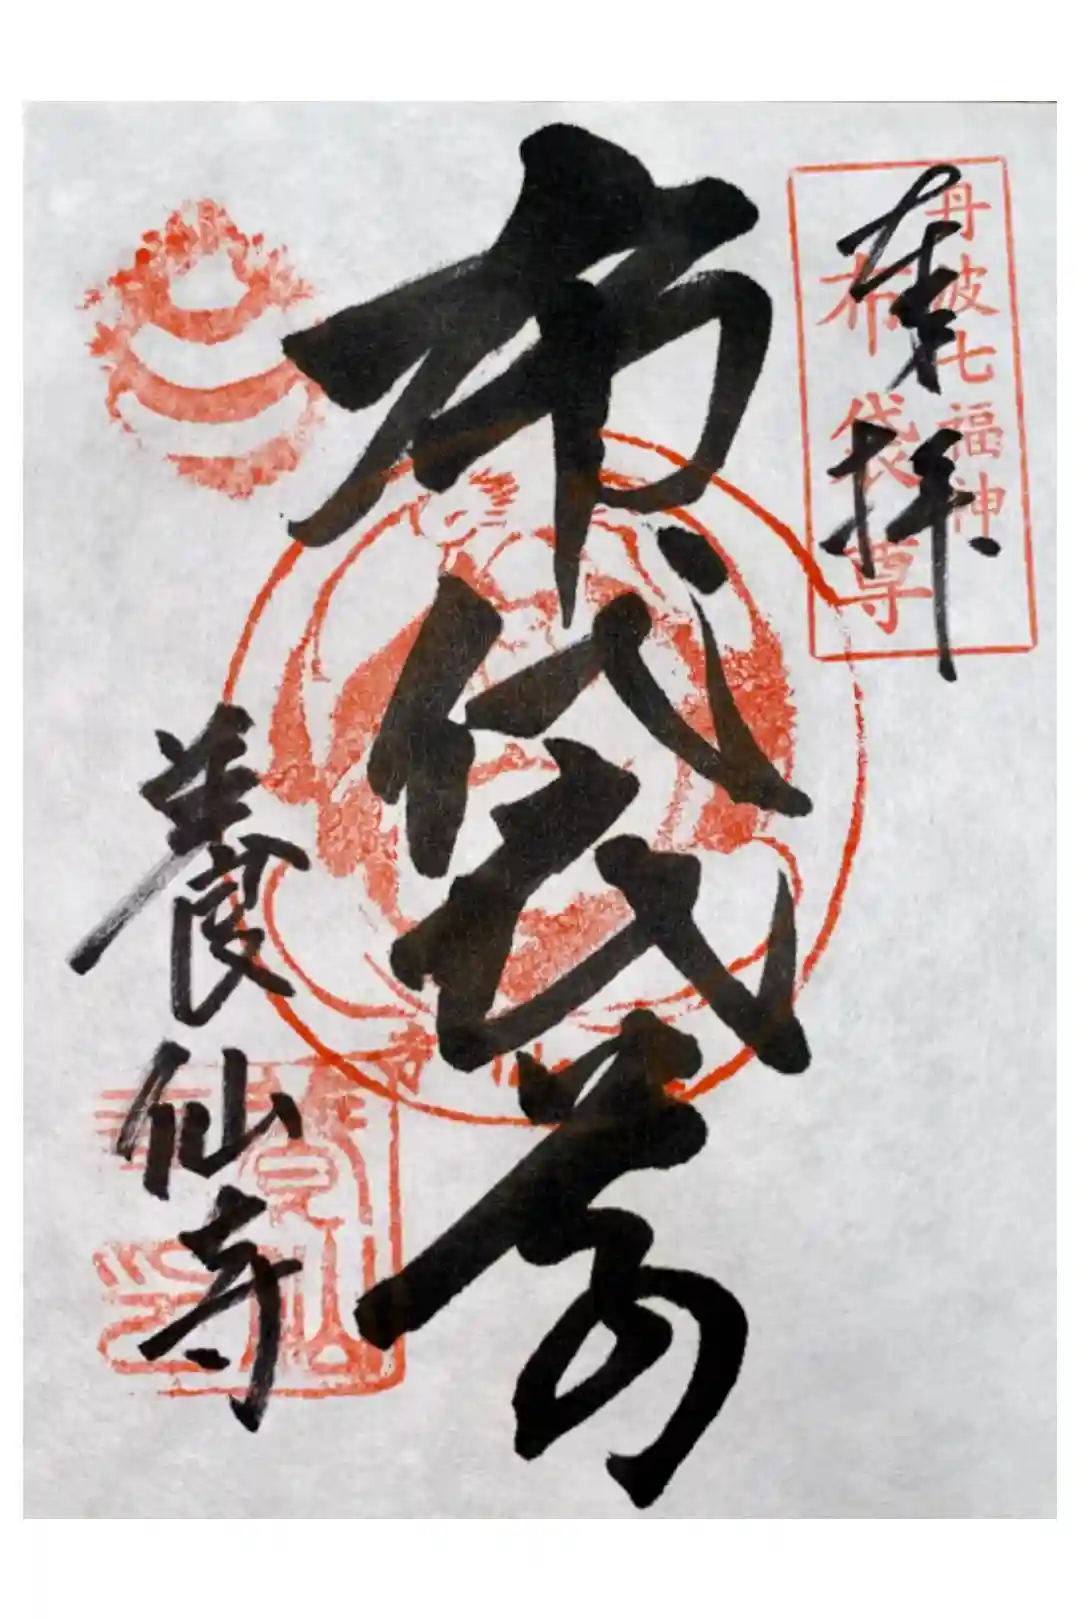 丹波七福神
布袋尊
奉拝
布袋尊
養仙寺